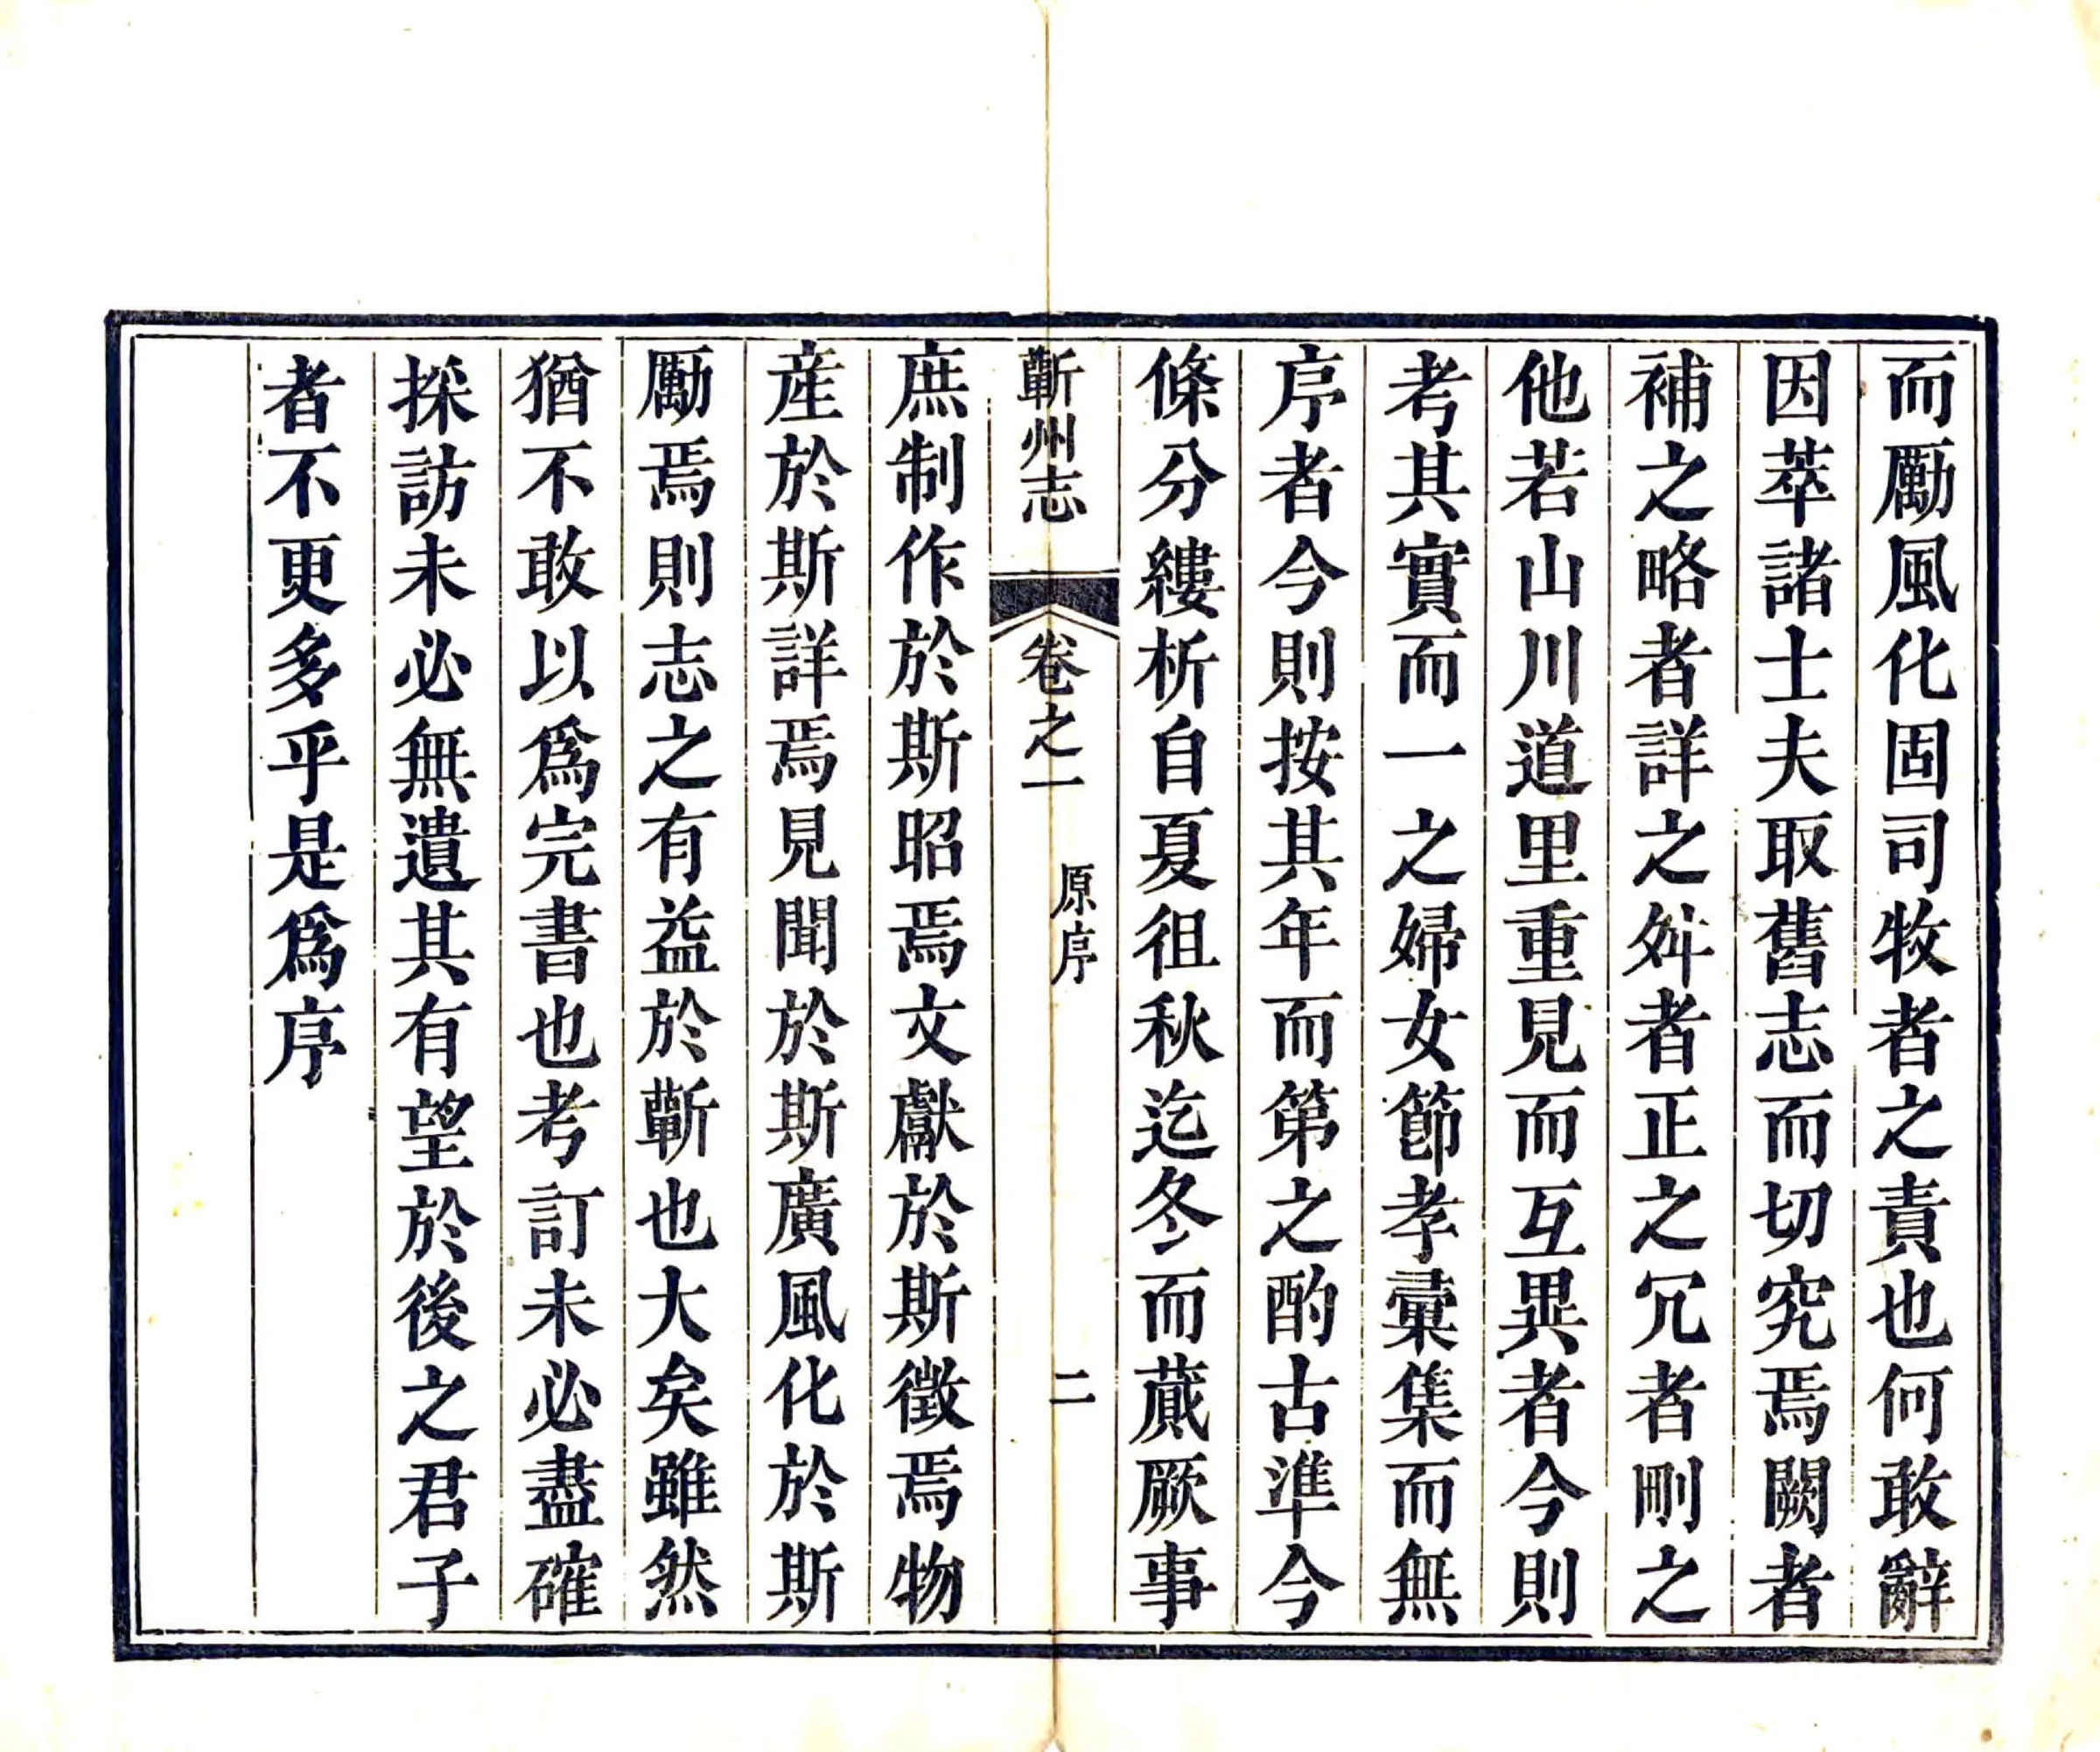 而勵風化固司牧者之責也何敢辭
因萃諸士夫取舊志而切究焉闕者
補之略者詳之舛者正之冗者刪之
他若山川道里重見而互異者今則
考其實而一之婦女節孝彙集而無
序者今則按其年而第之酌古準今
條分縷析自夏徂秋迄冬而蕆厥事
蘄州志 卷之一 原序 二
庶制作於斯昭焉文獻於斯徵焉物
産於斯詳焉見聞於斯廣風化於斯
勵焉則志之有益於蘄也大矣雖然
猶不敢以爲完書也考訂未必盡確
採訪未必無遺其有望於後之君子
者不更多乎是爲序